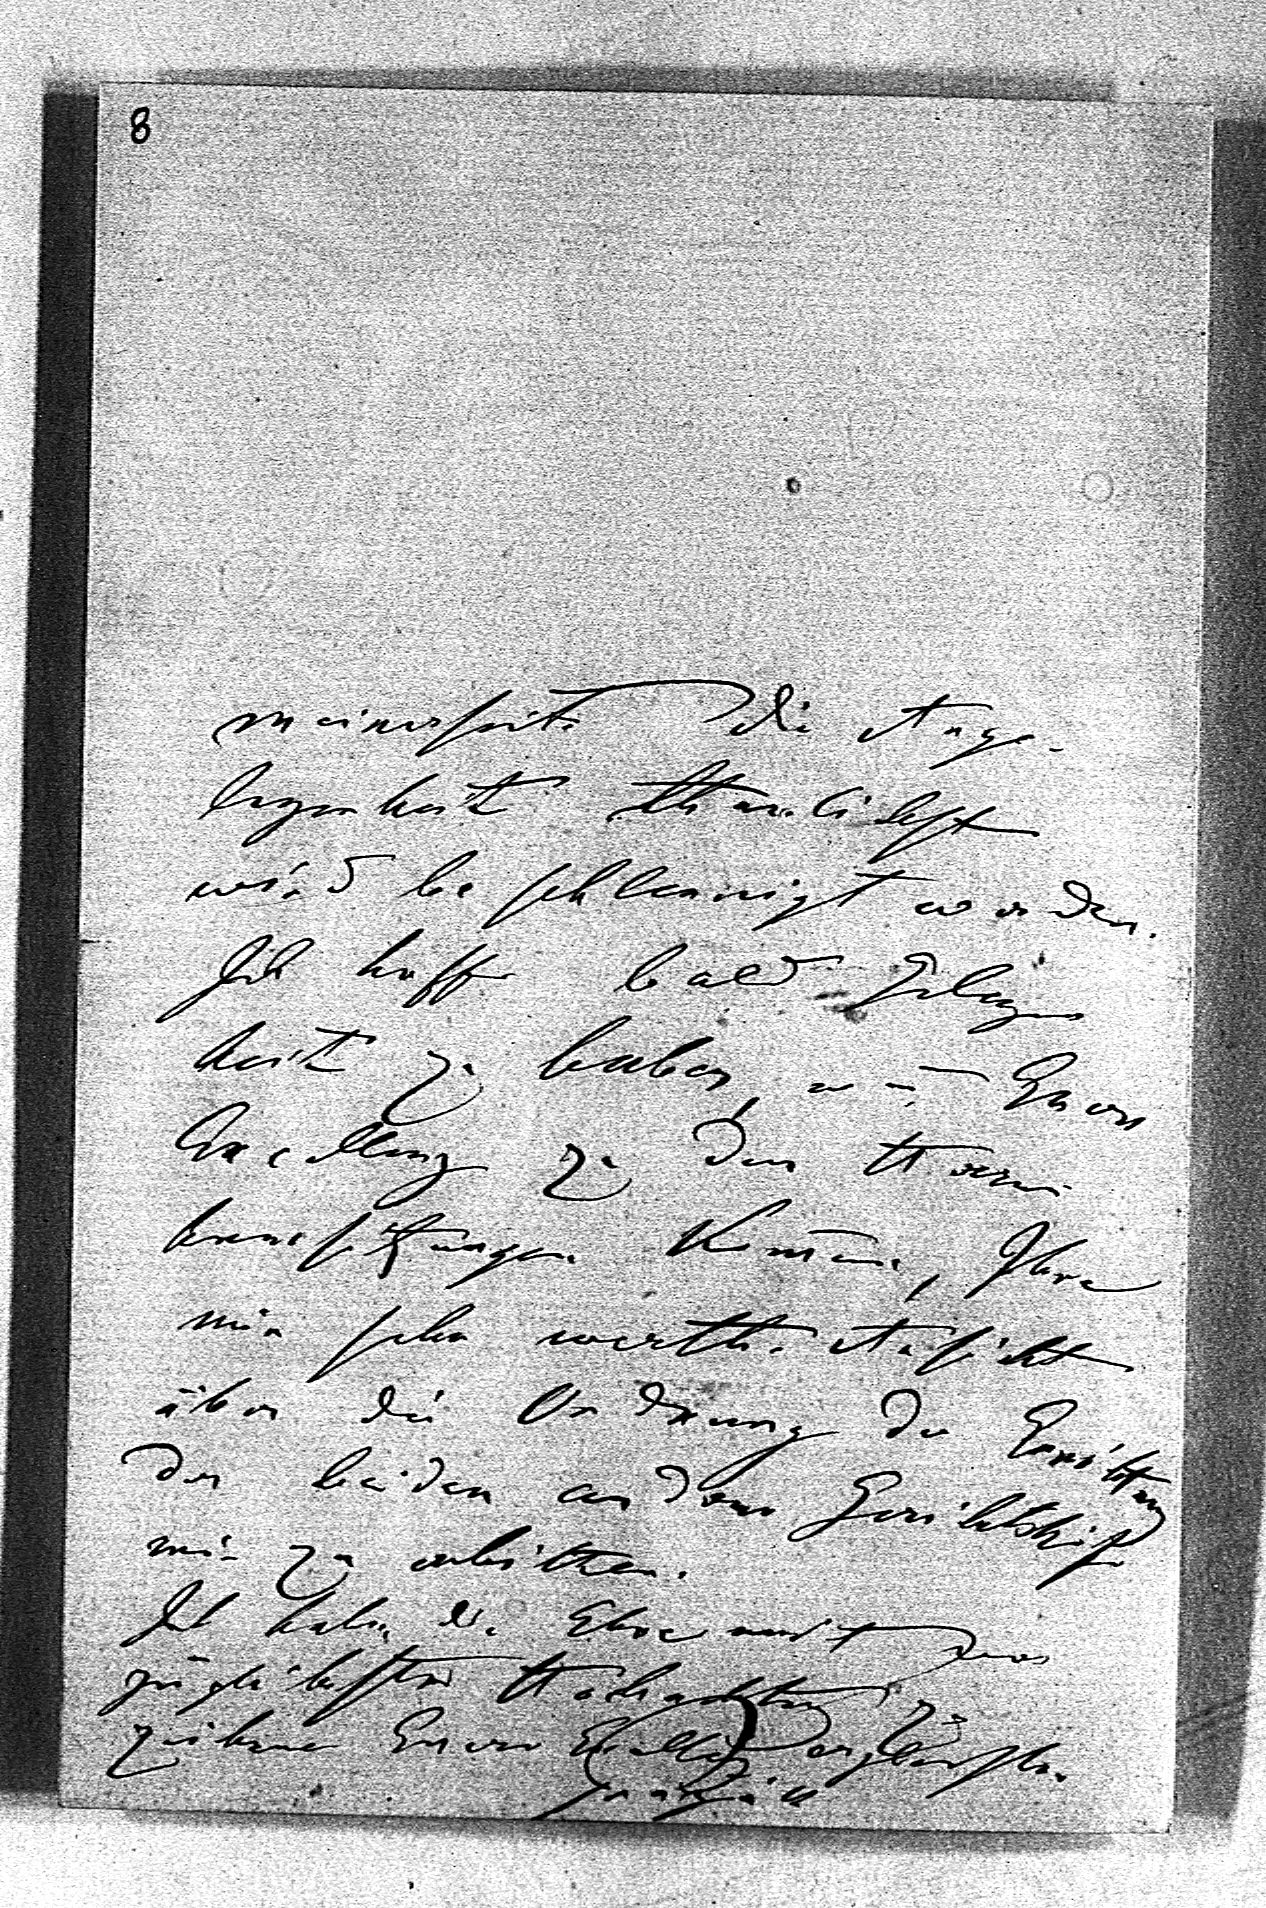 8
meinerseits die Ange-
legenheit thunlichst
wird beschleunigt werden.
Ich hoffe bald Gelegen
heit zu haben, wenn Euer
Excellenz zu den Herren
haussitzungen kommen, Ihre
mir sehr werthe Ansicht
über die Ordnung der
der beiden andern
mir zu erbitten.
Ich habe die Ehre mit vor
züglichster Hochachtung zu
zeichnen Euer Excellenz ergebenster